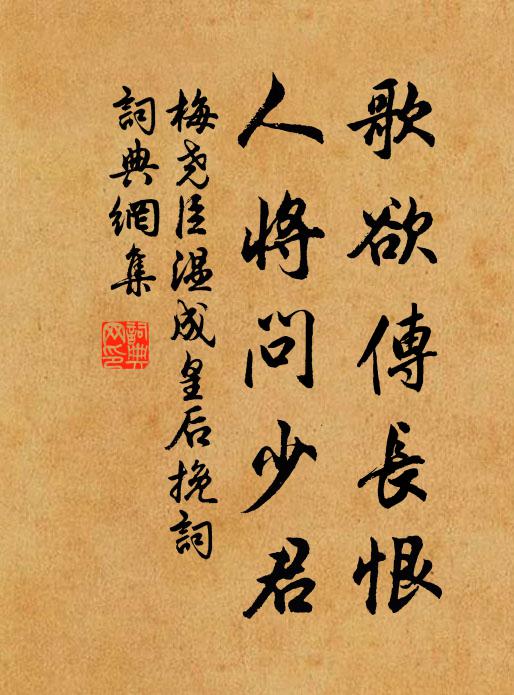 歌欲傳長恨
人將問少君
梅堯臣溫成皇后挽詞
詞典網集
詞典网印